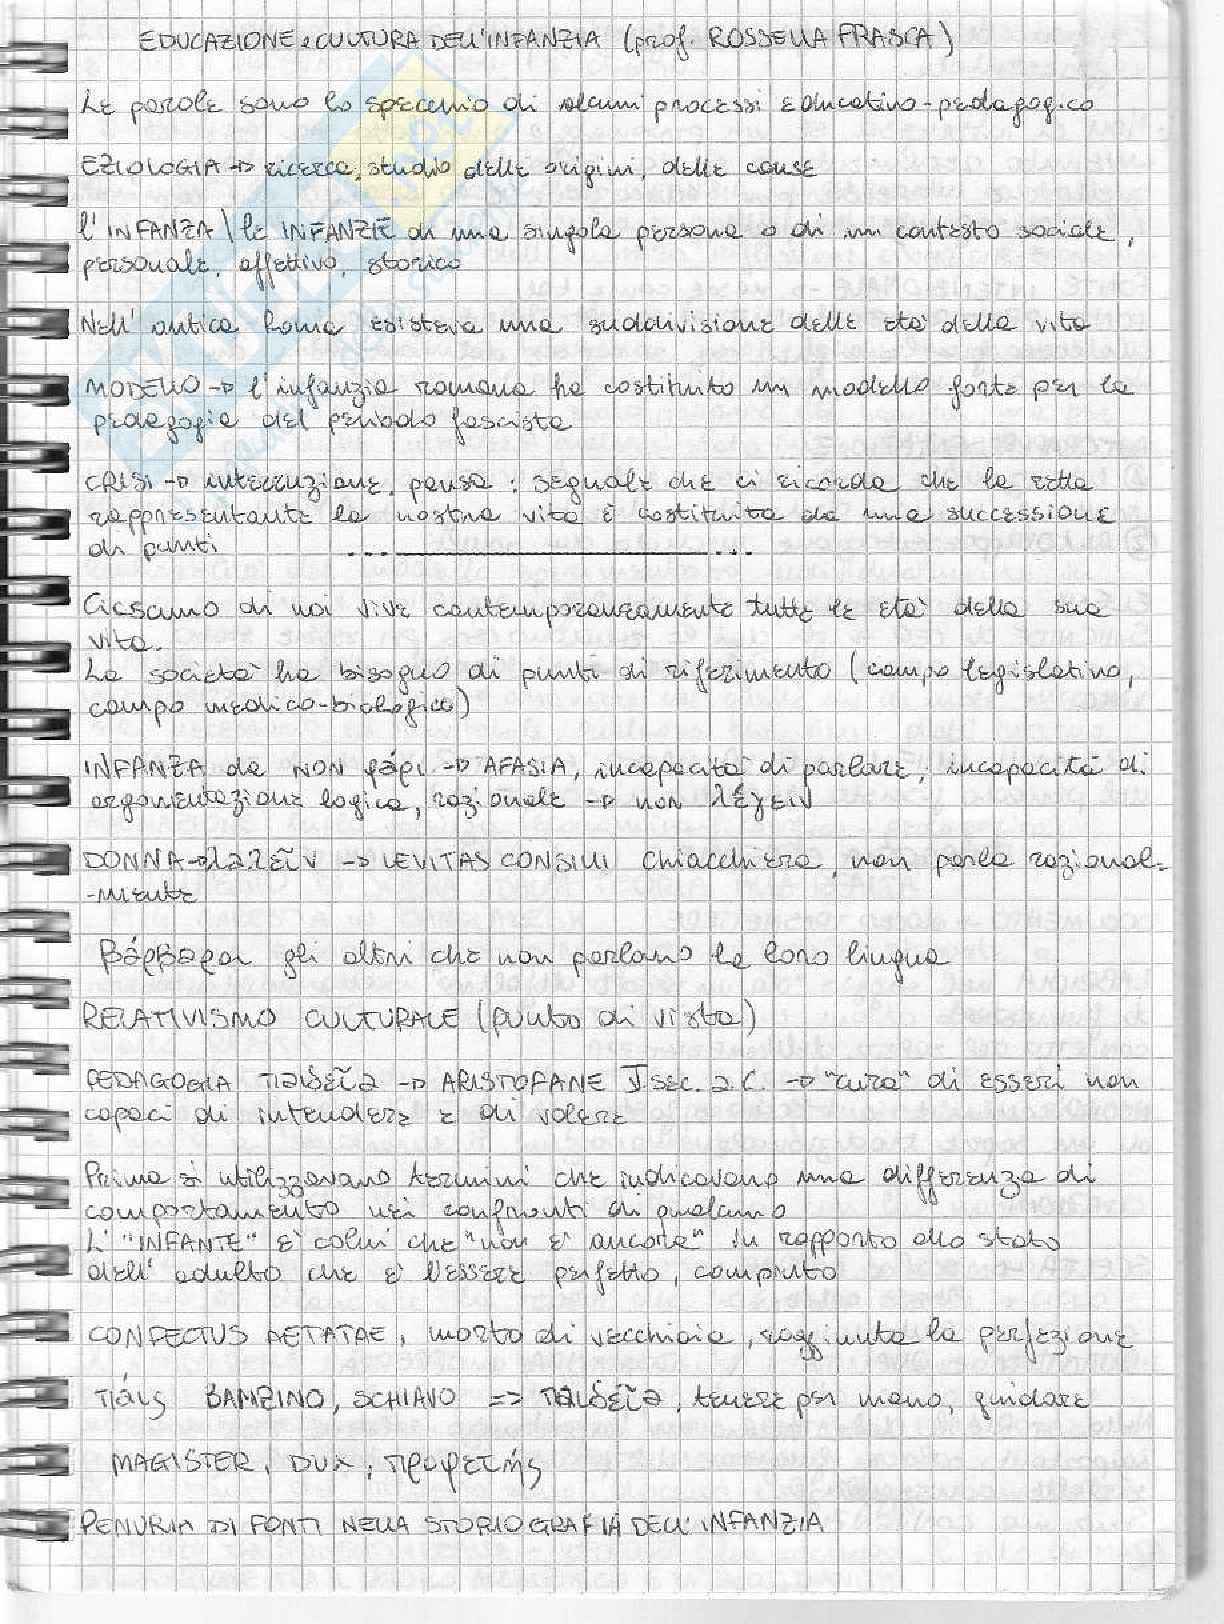 EDUCAZIONE e CULTURA DELL'INFANZIA (prof. ROSSELLA FRASCA)
Le parole sono lo specchio di alcuni processi educativo-pedagogico
EZIOLOGIA → ricerca, studio delle origini, delle cause
l'INFANZA \ le INFANZIE di una singola persona o di un contesto sociale,
personale, affettivo, storico
Nell' antica Roma esisteva una suddivisione delle età della vita
MODELLO → l'infanzia romana ha costituito un modello forte per la
pedagogia del periodo fascista
CRISI → interruzione, pausa: segnale che ci ricorda che la retta
rappresentante la nostra vita è costituita da una successione
di punti
Ciascuno di noi vive contemporaneamente tutte le età della sua
vita.
La società ha bisogno di punti di riferimento (campo legislativo,
campo medico-biologico)
INFANZA da NON φάρι → AFASIA, incapacità di parlare, incapacità di
argomentazione logica, razionale → non λέγειν
DONNA → λαλεῖν → LEVITAS CONSILII chiacchiera, non parla razional-
-mente
Βάρβαροι gli altri che non parlano la loro lingua
RELATIVISMO CULTURALE (punto di vista)
PEDAGOGIA παιδεῖα → ARISTOFANE V sec. a.C. → "cura" di esseri non
capaci di intendere e di volere
Prima si utilizzavano termini che indicavano una differenza di
comportamento nei confronti di qualcuno
L' "INFANTE" è colui che "non è ancora" in rapporto allo stato
dell' adulto che è l'essere perfetto, compiuto
CONFECTUS AETATAE, morto di vecchiaia, raggiunta la perfezione
πάις BAMBINO, SCHIAVO => παιδεῖα, tenere per mano, guidare
MAGISTER, DUX, προφετής
PENURIA DI FONTI NELLA STORIOGRAFIA DELL'INFANZIA